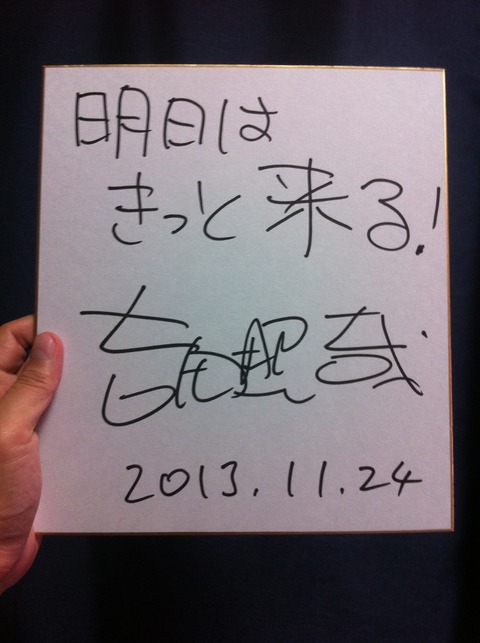 明日は
きっと来る!
2013.11.24